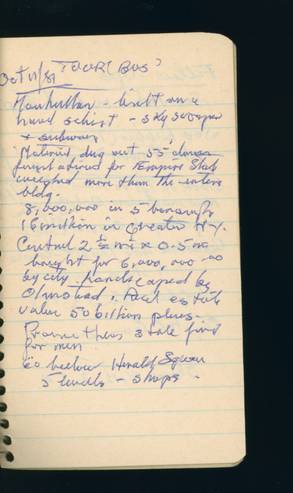 Oct 11/81 TOUR (BUS)
Manhattan - built on a
hard schist - skyscraper
+ subway
Material dug out 55' down
for Empire State
weighed more than the entire
bldg.
8,000,000 in 5 boroughs
16 million in greater N.Y.
Central 2 ½ mi x 0.5 mi
bought for 6,000,000
by city landscaped by
Olmstead. Real estate
value 50 billion plus.
Prometheus stole fire
for men
Go below Herald Square
5 levels - shops -